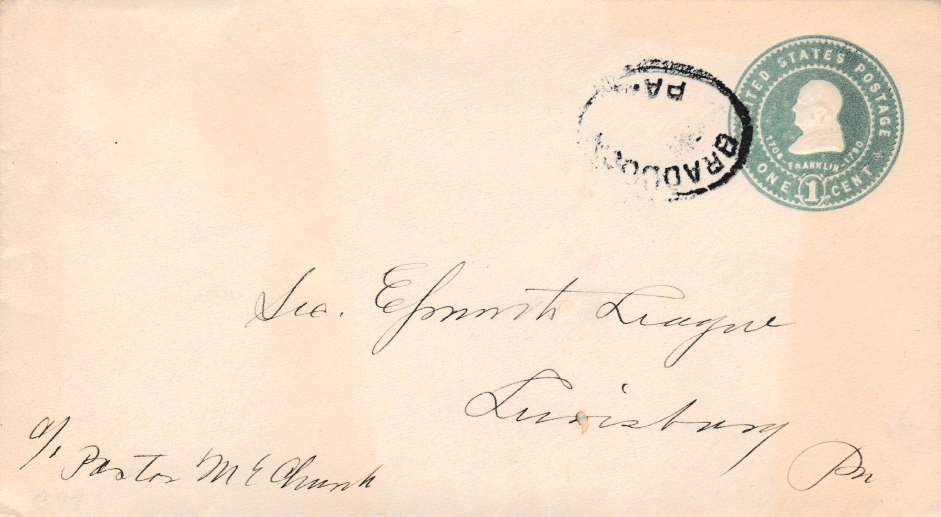 UNITED STATES POSTAGE
1706-FRANKLIN-1790
ONE 1 CENT
BRADDOCK
PA.
Sec. Epworth League
Lewisburg
Pa
c/o Pastor M E Church